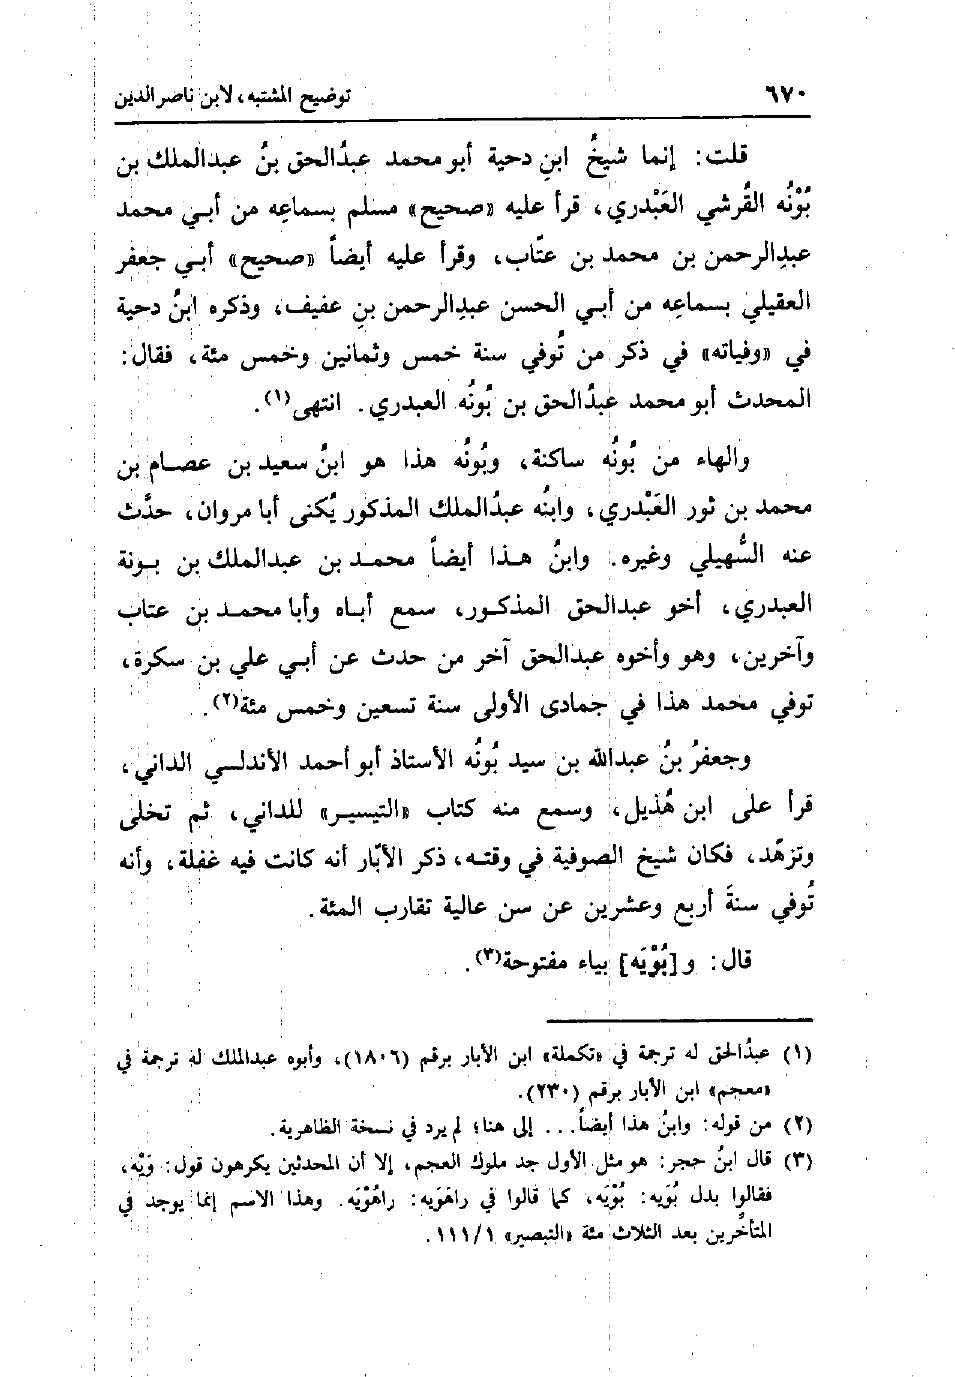 ٦٧٠
توضيح المشتبه، لابن ناصر الدين
قلت: إنما شيخُ ابنِ دحية أبو محمد عبدُالحق بنُ عبدالملك بن
بُوْنُه القُرشي العَبْدري، قرأ عليه «صحيح» مسلم بسماعِه من أبي محمد
عبدِالرحمن بن محمد بن عتّاب، وقرأ عليه أيضاً «صحيح» أبي جعفر
العقيلي بسماعِه من أبي الحسن عبدِالرحمن بنِ عفيف، وذكره ابنُ دحية
في «وفياته» في ذكر من تُوفي سنة خمس وثمانين وخمس مئة، فقال:
المحدث أبو محمد عبدُالحق بن بُونُه العبدري. انتهى(١).
والهاء من بُونُه ساكنة، وبُونُه هذا هو ابنُ سعيد بن عصام بن
محمد بن ثور العَبْدري، وابنُه عبدُالملك المذكور يُكنى أبا مروان، حدَّث
عنه السُّهيلي وغيره. وابنُ هذا أيضاً محمد بن عبدالملك بن بونة
العبدري، أخو عبدالحق المذكور، سمع أباه وأبا محمد بن عتاب
وآخرين، وهو وأخوه عبدالحق آخر من حدث عن أبي علي بن سكرة،
توفي محمد هذا في جمادى الأولى سنة تسعين وخمس مئة(٢).
وجعفرُ بنُ عبدالله بن سيد بُونُه الأستاذ أبو أحمد الأندلسي الداني،
قرأ على ابن هُذيل، وسمع منه كتاب «التيسير» للداني، ثم تخلى
وتزهّد، فكان شيخ الصوفية في وقته، ذكر الأبّار أنه كانت فيه غفلة، وأنه
تُوفي سنةَ أربع وعشرين عن سن عالية تقارب المئة.
قال: و[بُوْيَه] بياء مفتوحة(٣).
(١) عبدُالحق له ترجمة في «تكملة» ابن الأبار برقم (١٨٠٦)، وأبوه عبدالملك له ترجمة في
«معجم» ابن الأبار برقم (٢٣٠).
(٢) من قوله: وابنُ هذا أيضاً... إلى هنا؛ لم يرد في نسخة الظاهرية.
(٣) قال ابنُ حجر: هو مثل الأول جد ملوك العجم، إلا أن المحدثين يكرهون قول: وَيْه،
فقالوا بدل بُوَيه: بُوْيَه، كما قالوا في راهَوَيه: راهُوْيَه. وهذا الاسم إنما يوجد في
المتأخّرين بعد الثلاث مئة «التبصير» ١/١١١.